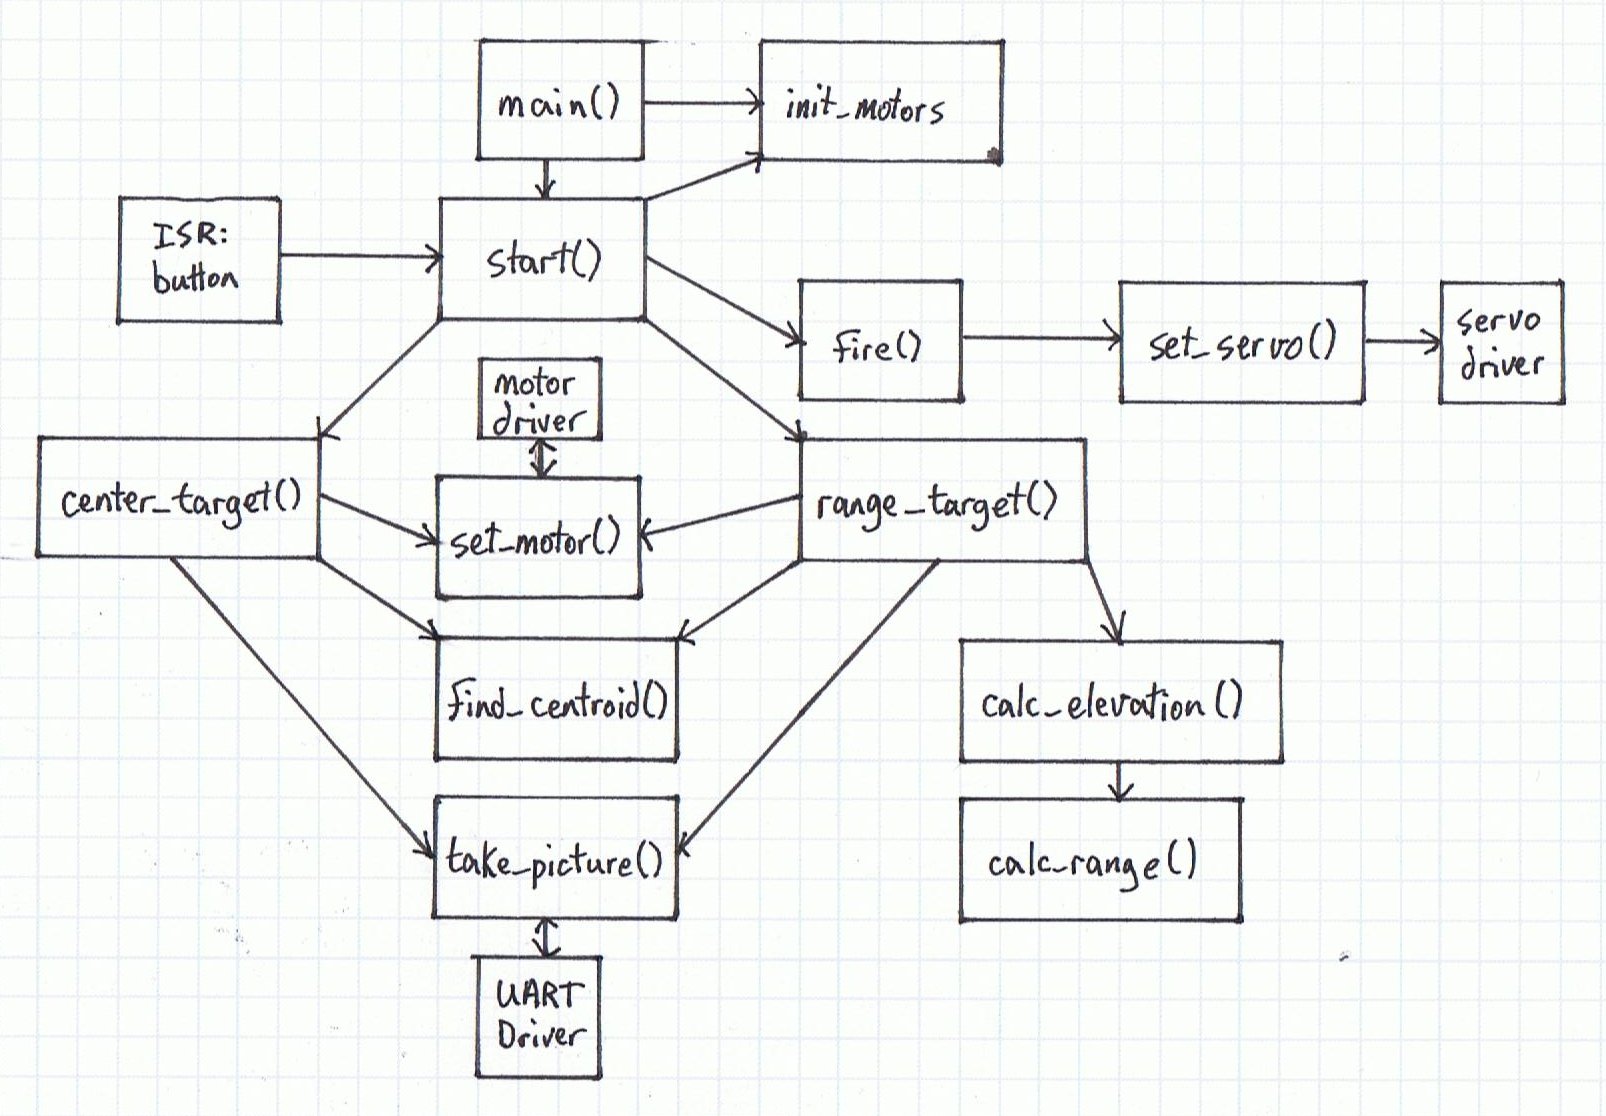 main()
init_motors
ISR:
button
start()
fire()
set_servo()
servo
driver
motor
driver
center_target()
set_motor()
range_target()
find_centroid()
calc_elevation()
take_picture()
calc_range()
UART
Driver